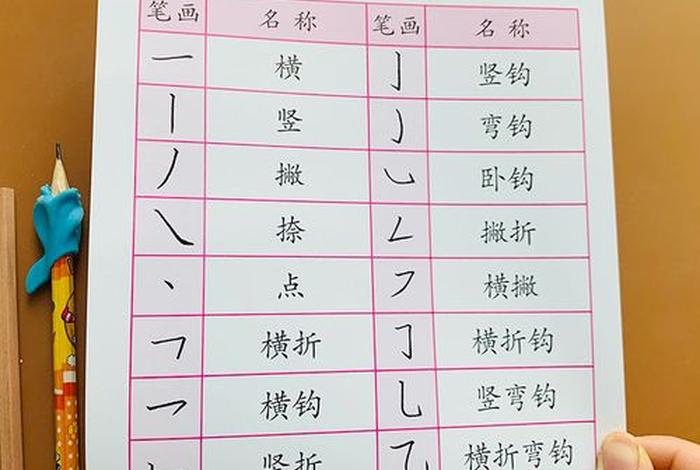 笔画 名称 笔画 名称
一 横 亅 竖钩
丨 竖 ㇁ 弯钩
丿 撇 ㇃ 卧钩
㇏ 捺 ㇜ 撇折
丶 点 ㇇ 横撇
㇕ 横折 ㇆ 横折钩
乛 横钩 乚 竖弯钩
竖折 ㇈ 横折弯钩